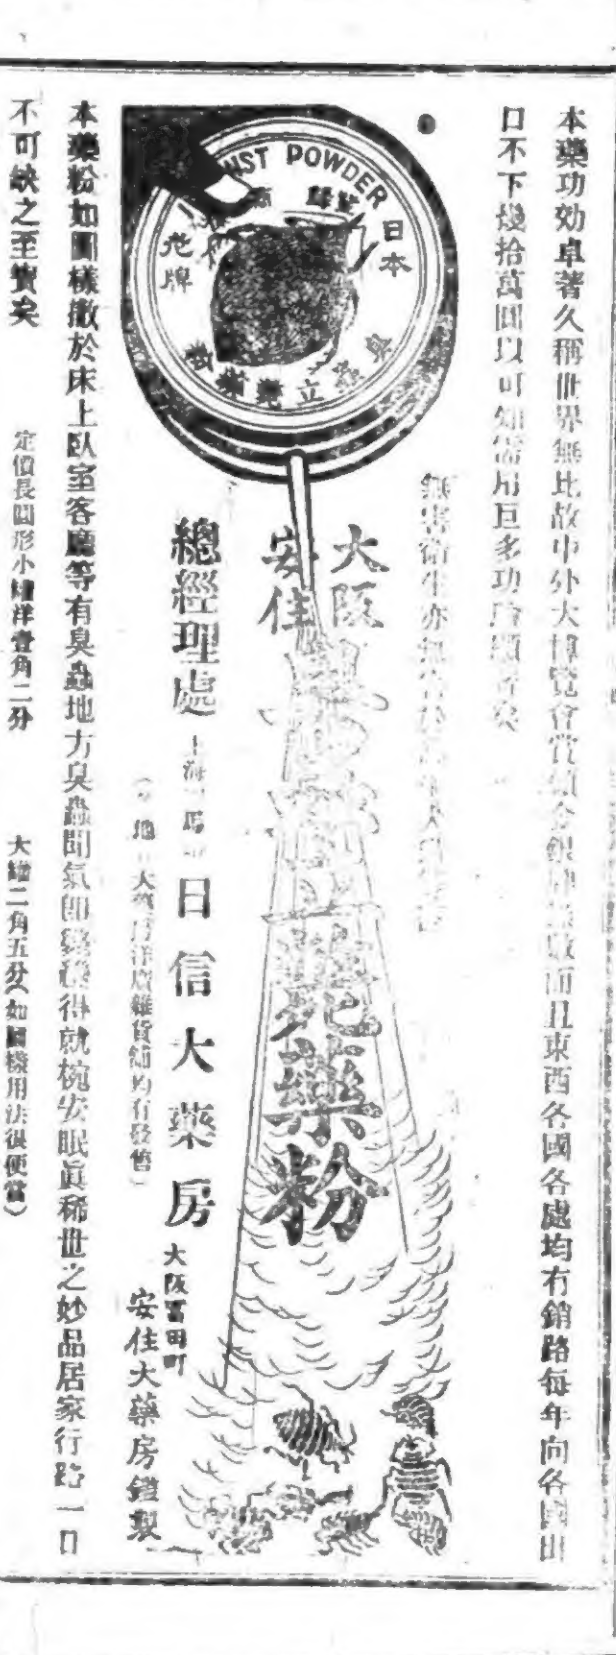 本藥功効卓著久稱世界無比故中外大博覽會賞領金銀牌無數而且東西各國各處均有銷路每年向各國出
口不下幾拾萬圓以可知需用巨多功
無害衛生亦無
大阪
安住
臭蟲立斃藥粉
INST POWDER
日本
老牌
臭蟲立斃藥粉
總經理處
上海
日信大藥房
大藥房洋廣雜貨舖均有發售
大阪富田町
安住大藥房鑑製
本藥粉如圖樣撒於床上臥室客廳等有臭蟲地方臭蟲聞氣即斃獲得就枕安眠眞稀世之妙品居家行路一日
不可缺之至寶矣
定價長圓形小罐洋壹角二分
大罐二角五分(如圖樣用法很便當)